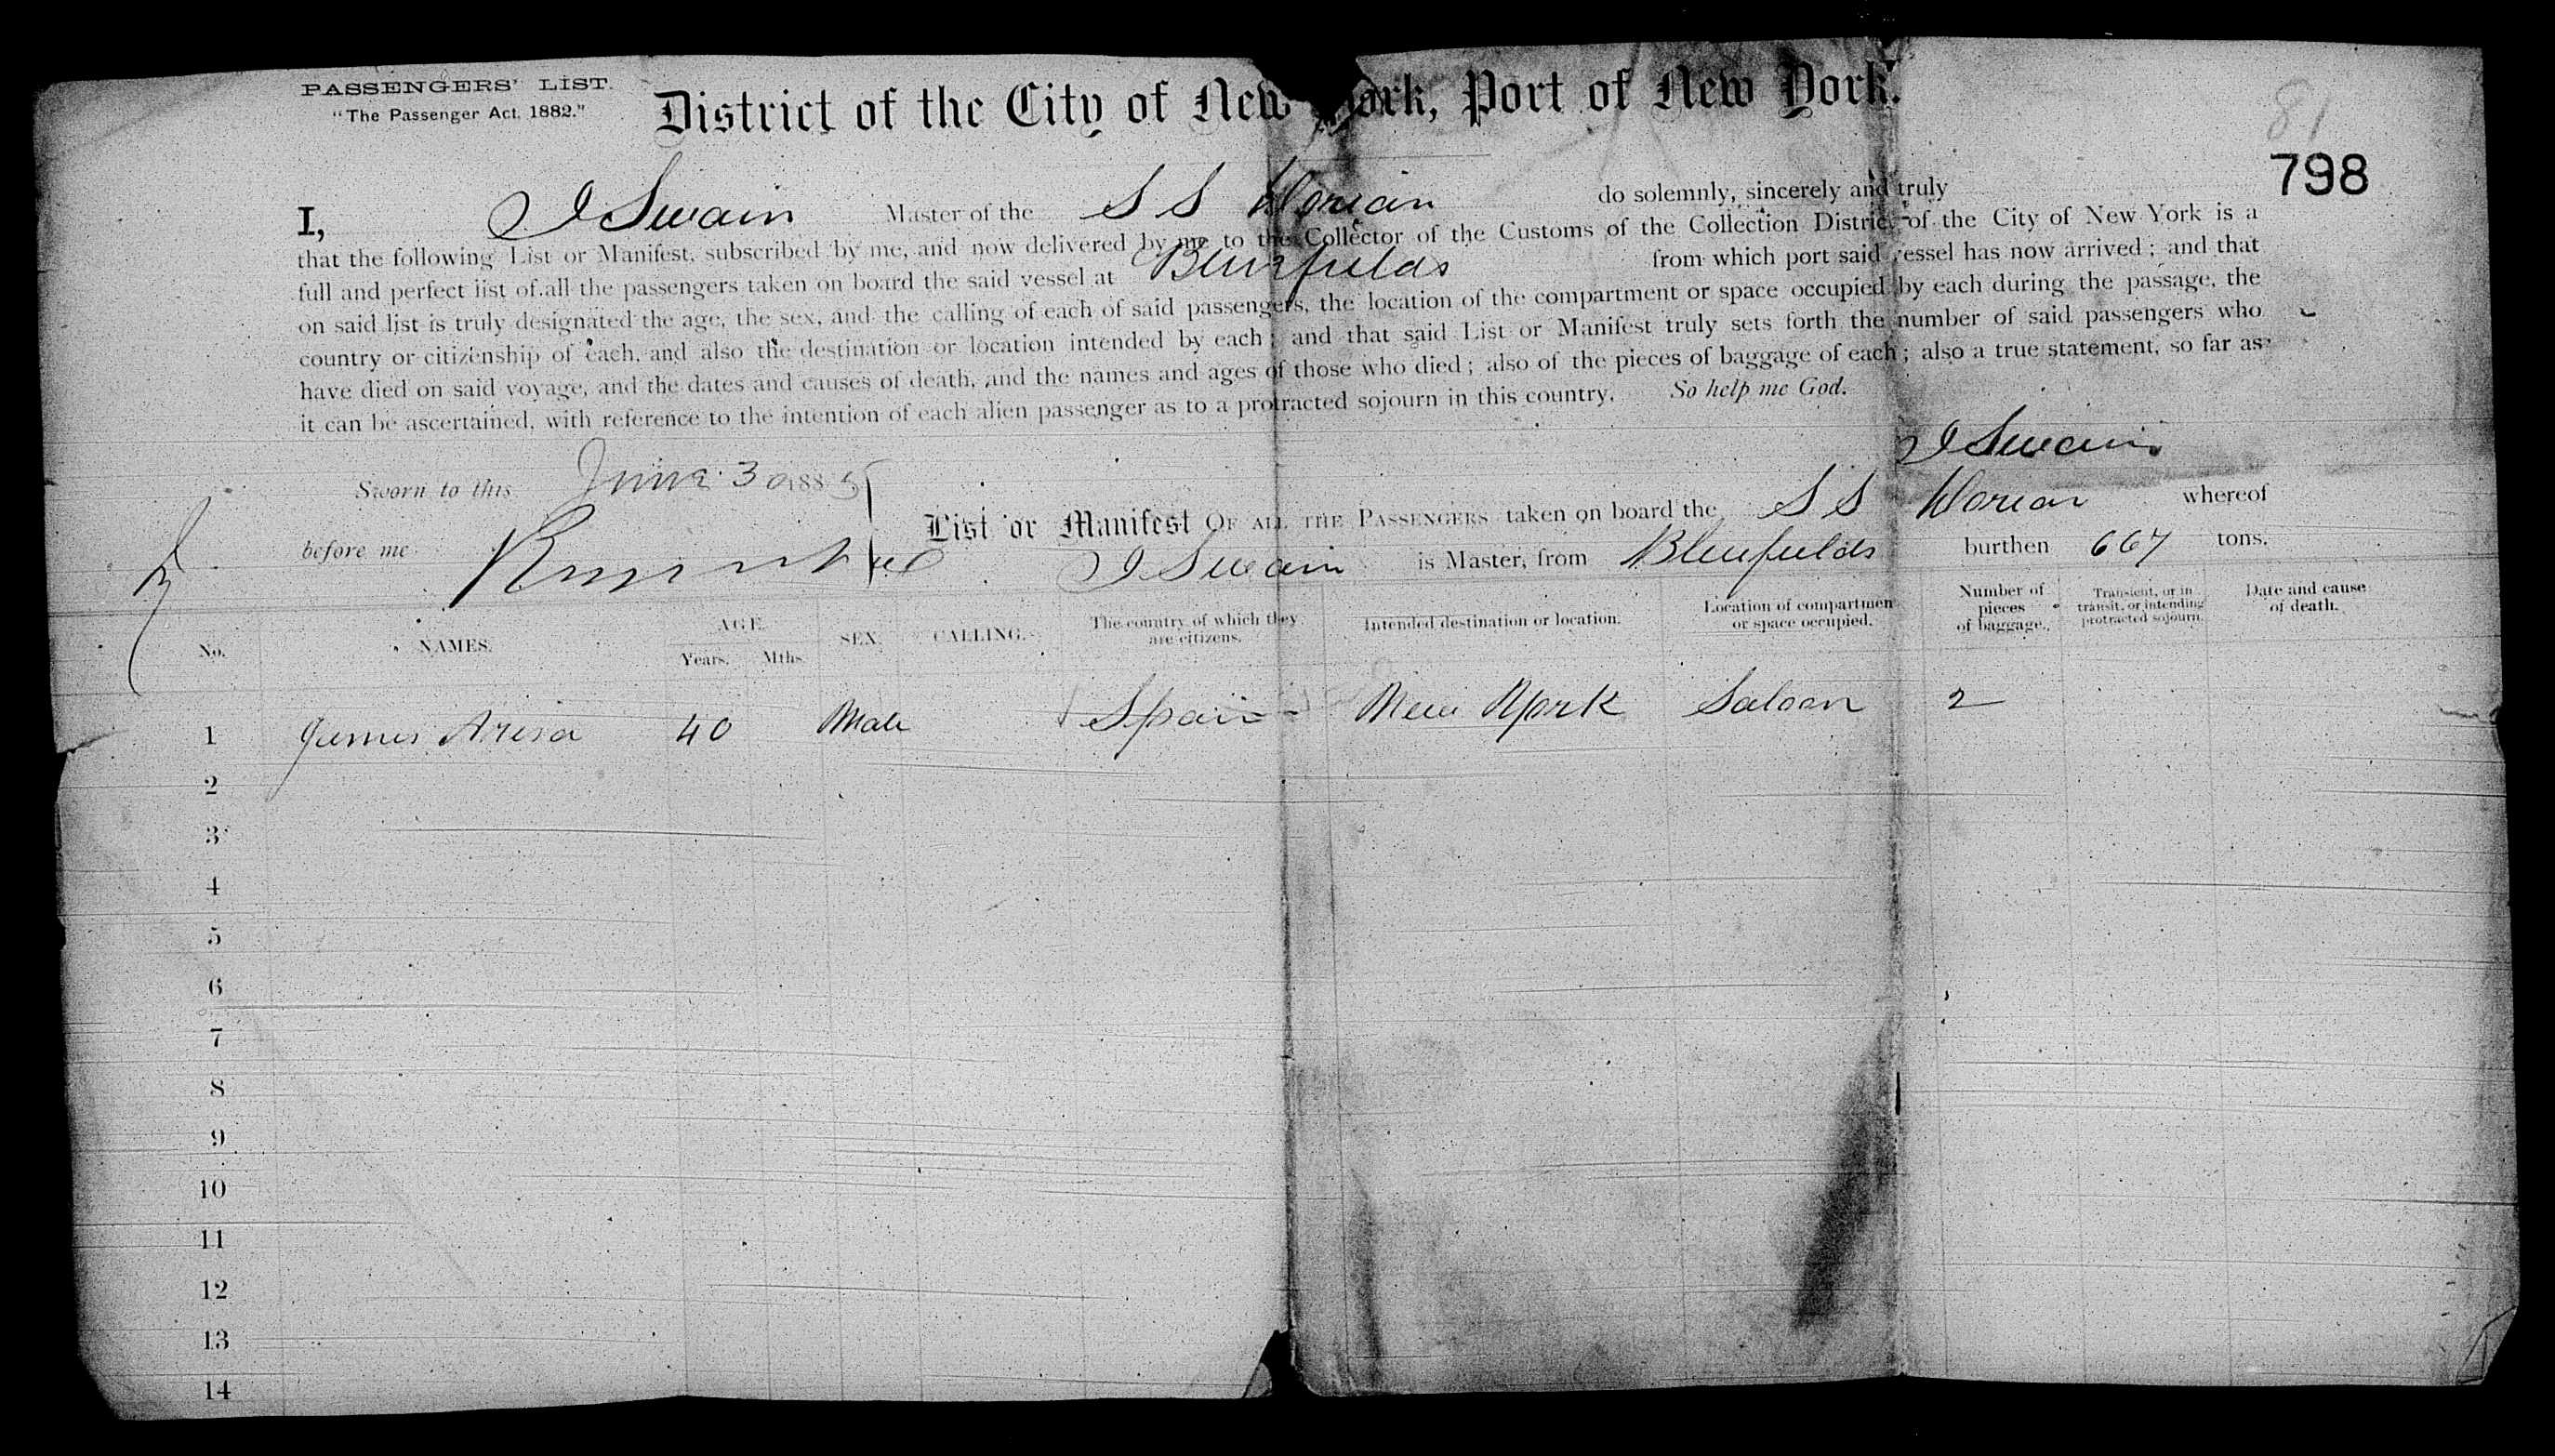 PASSENGERS' LIST.
"The Passenger Act, 1882."
District of the City of New York, Port of New York.
81
798
I, J Swain Master of the S S Dorian do solemnly, sincerely and truly
that the following List or Manifest, subscribed by me, and now delivered by me to the Collector of the Customs of the Collection District of the City of New York is a
full and perfect list of all the passengers taken on board the said vessel at Bluefields from which port said vessel has now arrived; and that
on said list is truly designated the age, the sex, and the calling of each of said passengers, the location of the compartment or space occupied by each during the passage, the
country or citizenship of each, and also the destination or location intended by each; and that said List or Manifest truly sets forth the number of said passengers who
have died on said voyage, and the dates and causes of death, and the names and ages of those who died; also of the pieces of baggage of each; also a true statement, so far as
it can be ascertained, with reference to the intention of each alien passenger as to a protracted sojourn in this country. So help me God.
J Swain
Sworn to this June 30 1885
List or Manifest OF ALL THE PASSENGERS taken on board the S S Dorian whereof
before me
J Swain is Master, from Bluefields burthen 667 tons.
No. NAMES. AGE. Years. Mths. SEX. CALLING. The country of which they are citizens. Intended destination or location. Location of compartment or space occupied. Number of pieces of baggage. Transient, or in transit, or intending protracted sojourn. Date and cause of death.
1 40 Male Spain New York Saloon 2
2
3
4
5
6
7
8
9
10
11
12
13
14